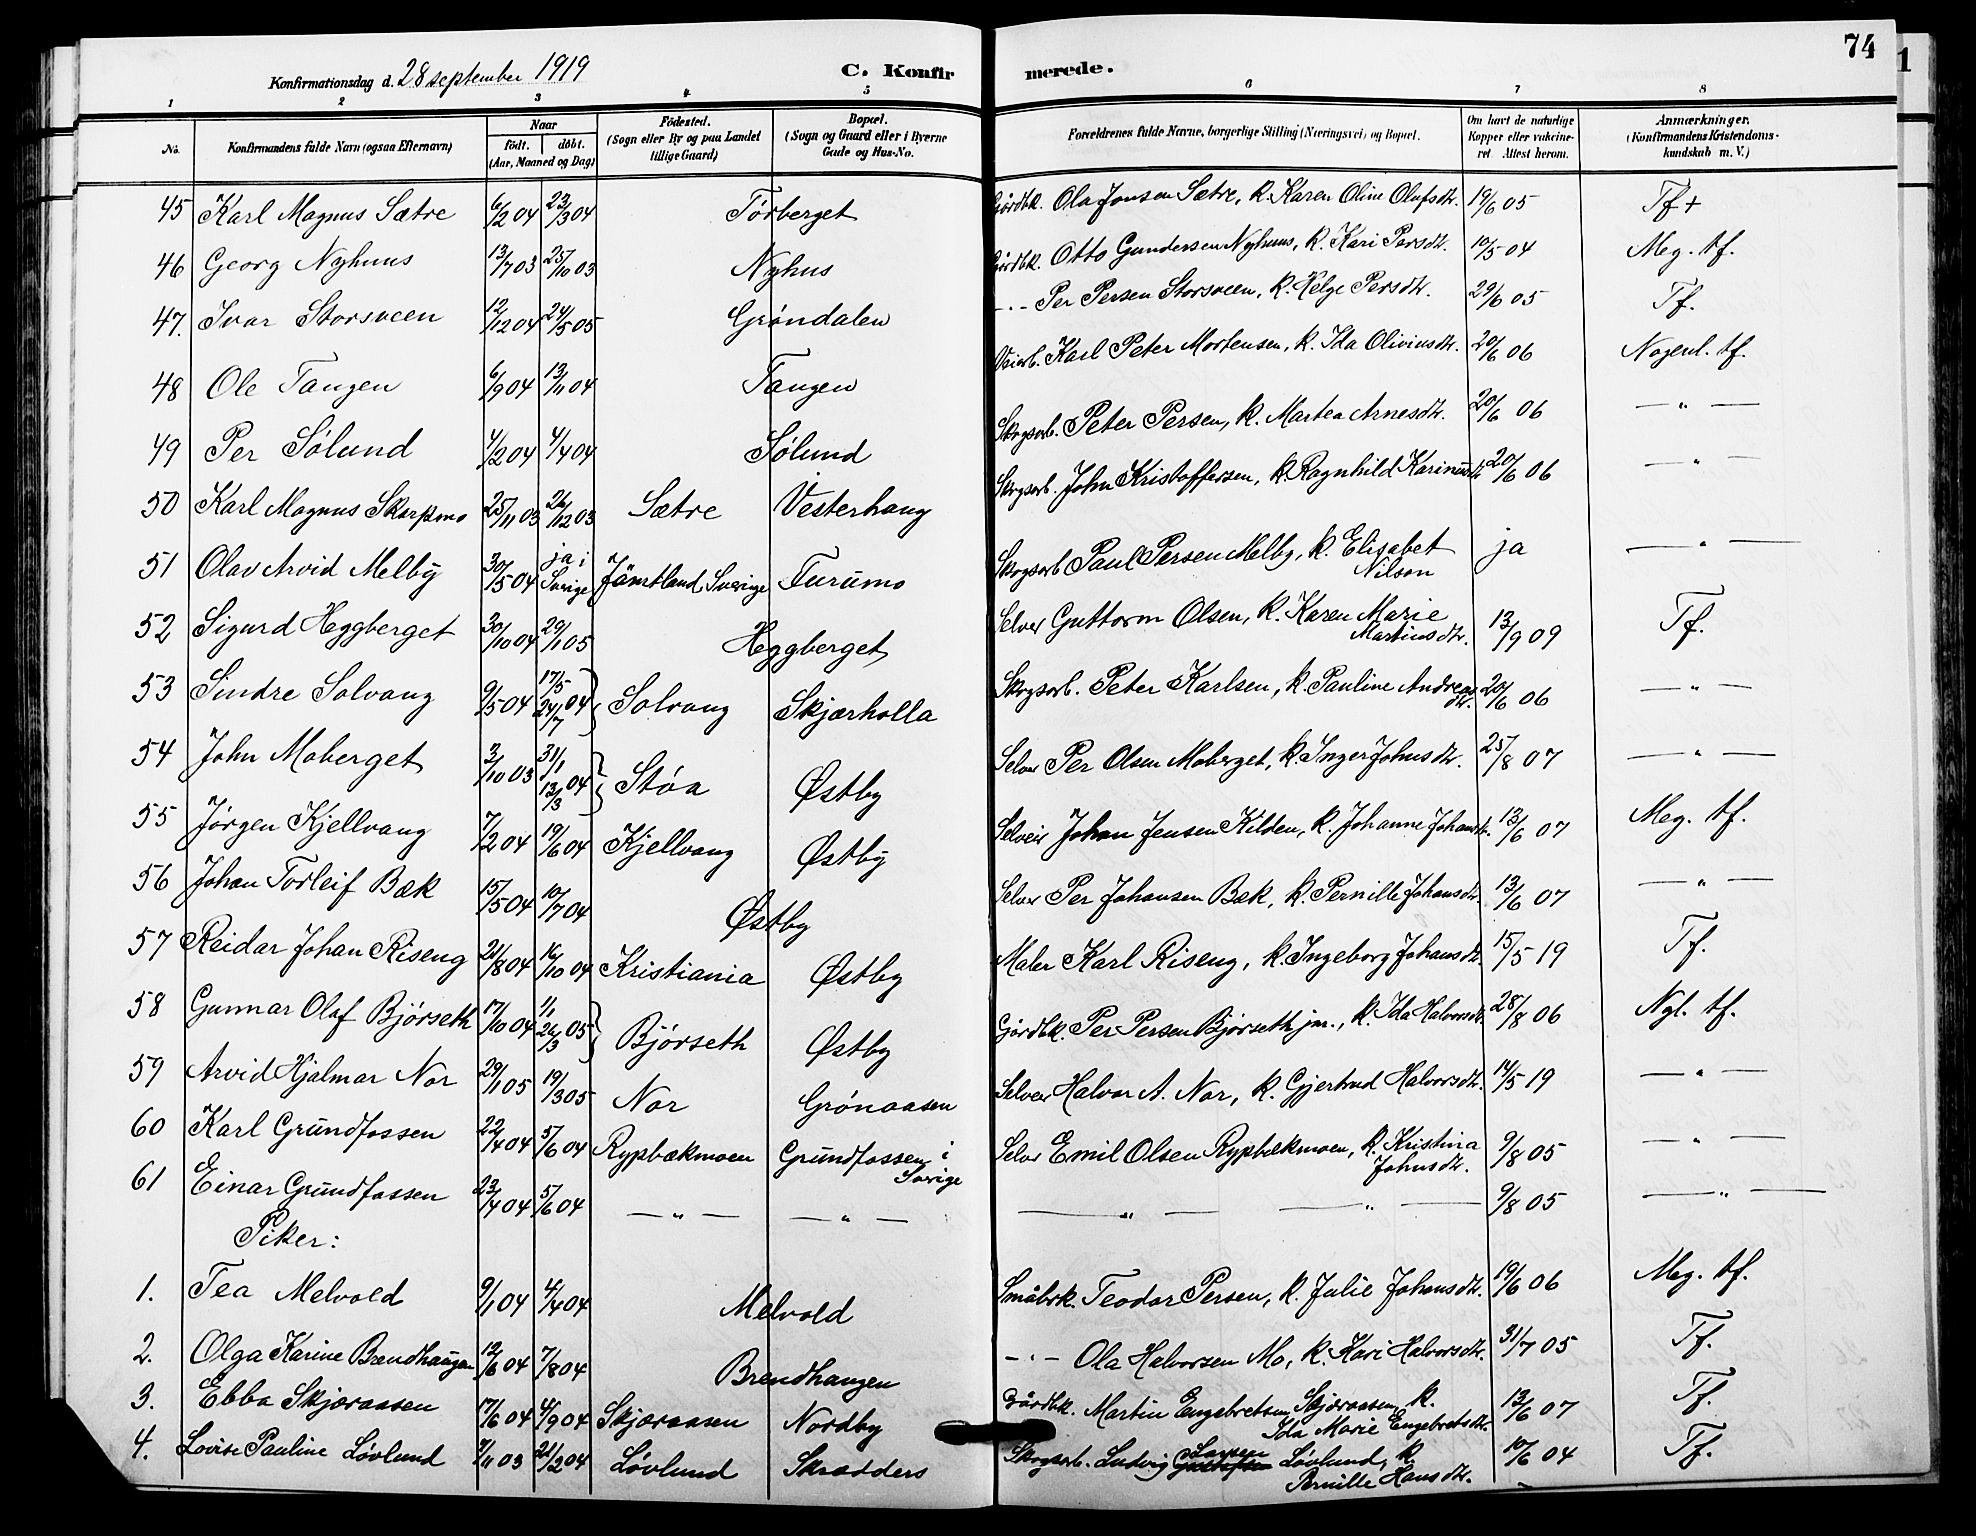 74
Konfirmationsdag d. 28 september 1919 C. Konfirmerede.
1 2 3 4 5 6 7 8
No. Konfirmandens fulde Navn (ogsaa Efternavn) Naar födt. döbt. (Aar, Maaned og Dag) Födested. (Sogn eller By og paa Landet tillige Gaard) Bopæl. (Sogn og Gaard eller i Byerne Gade og Hus-No. Forældrenes fulde Navne, borgerlige Stilling (Næringsvei) og Bopæl. Om havt de naturlige Kopper eller vakcineret Attest herom. Anmærkninger. (Konfirmandens Kristendomskundskab m. V.)
45 Karl Magnus Sætre 6/2 04 23/3 04 Törberget Gårdbk. Ola Jonsen Sætre, k. Karen Oline Olufsdtr. 19/6 05 Tf +
46 Georg Nyhuus 13/7 03 25/10 03 Nyhus Gårdbk. Otto Gundersen Nyhuus, k. Kari Persdtr. 10/5 04 Meg. tf.
47. Ivar Storsveen 12/12 04 24/5 05 Gröndalen - " - Per Persen Storsveen, k. Helge Persdtr. 29/6 05 Tf.
48 Ole Tangen 6/9 04 13/11 04 Tangen Veiarb. Karl Peter Mortensen, k. Ida Oliviusdtr. 20/6 06 Nogenl. tf.
49 Per Sölund 4/2 04 4/4 04 Sölund Skogsarb. Peter Persen, k. Martea Arnesdtr. 20/6 06 — " —
50 Karl Magnus Skarpmo 25/11 03 26/12 03 Sætre Vesterhaug Skogsarb. John Kristoffersen, k. Ragnhild Karinusdtr. 20/6 06 — " —
51 Olav Arvid Melby 30/5 04 ja i Sverige Jämtland Sverige Furumo Skogsarb Paul Persen Melby, k. Elisabet Nilson ja — " —
52 Sigurd Heggberget 30/10 04 29/1 05 Heggberget Selvei Guttorm Olsen, k. Karen Marie Martinusdtr. 13/9 09 Tf.
53 Sindre Solvang 9/5 04 17/5 24/7 04 Solvang Skjærholla Skogsarb. Peter Karlsen, k. Pauline Andreasdtr. 20/6 06 — " —
54 John Moberget 3/10 03 31/1 13/3 04 Støa Østby Selvei Per Olsen Moberget, k. Inger Johnsdtr. 25/8 07 — " —
55 Jørgen Kjellvang 7/2 04 19/6 04 Kjellvang Østby Selveir Johan Jensen Kilden, k. Johanne Johansdtr. 13/6 07 Meg. tf.
56 Johan Torleif Bæk 15/5 04 10/7 04 Østby Selvei Per Johansen Bæk, k. Pernille Johansdtr. 13/6 07 — " —
57 Reidar Johan Riseng 21/8 04 16/10 04 Kristiania Østby Maler Karl Riseng, k. Ingeborg Johansdtr. 15/5 19 Tf.
58 Gunnar Olaf Björseth 17/10 04 1/1 26/3 05 Björseth Østby Gårdbk. Per Persen Björseth jnr., k. Ida Halvorsdtr. 28/8 06 Ngl. tf.
59 Arvid Hjalmar Nor 29/1 05 19/3 05 Nor Grönaasen Selvei Halvor A. Nor, k. Gjertrud Halvorsdtr. 14/5 19 — " —
60 Karl Grundfossen 22/4 04 5/6 04 Rypbækmoen Grundfossen i Sverige Selvei Emil Olsen Rypbækmoen, k. Kristina Johnsdtr. 9/8 05 — " —
61 Einar Grundfossen 23/4 04 5/6 04 — " — — " — — " — — " — 9/8 05 — " —
Piker:
1. Tea Melvold 9/1 04 4/4 04 Melvold Småbrk. Teodor Persen, k. Julie Johansdtr. 19/6 06 Meg. tf.
2. Olga Karine Brendhaugen 12/6 04 7/8 04 Brendhaugen - " - Ola Halvorsen Mo, k. Kari Halvorsdtr. 31/7 05 Tf.
3. Ebba Skjæraasen 17/6 04 4/9 04 Skjæraasen Nordby Gårdbk. Martin Engebretsen Skjæraasen, k. Ida Marie Engebretsdtr. 13/6 07 Tf.
4. Lovise Pauline Lövlund 9/11 03 21/2 04 Lövlund Skrædders Skogsarb. Ludvig Larsen Lövlund, k. Pernille Hansdtr. 10/6 04 Tf.